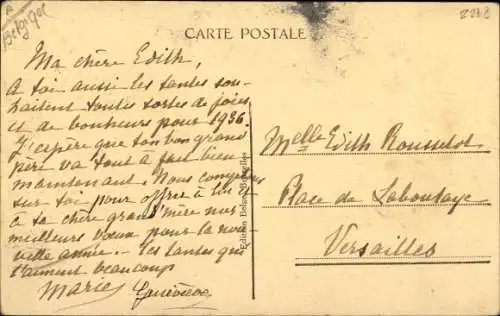 Belgique
2208
CARTE POSTALE
Ma chère Edith,
A toi aussi les tantes sou-
haitent toutes sortes de joies
et de bonheurs pour 1936.
J'espère que ton bon grand
père va tout à fait bien
maintenant. Nous comptons
sur toi pour offrir à lui et
à ta chère grand'mère nos
meilleurs vœux pour la nou-
velle année. Les tantes qui
t'aiment beaucoup
Marie Geneviève
Edition Belge, Bruxelles
Melle Edith Rousselot
Place de Laboulaye
Versailles